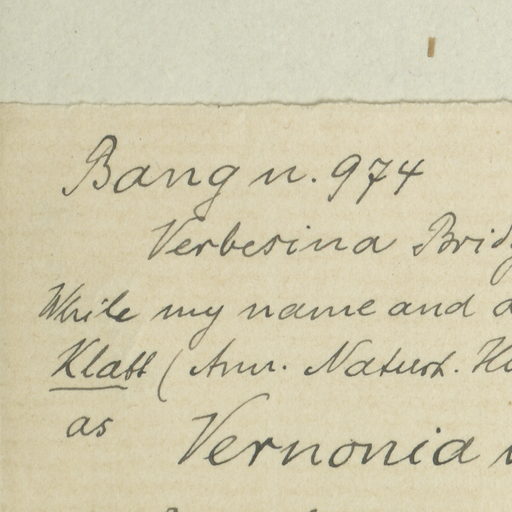 Bang n. 974
Verbesina
While my name and
Klatt (Ann. Naturh.
as Vernonia